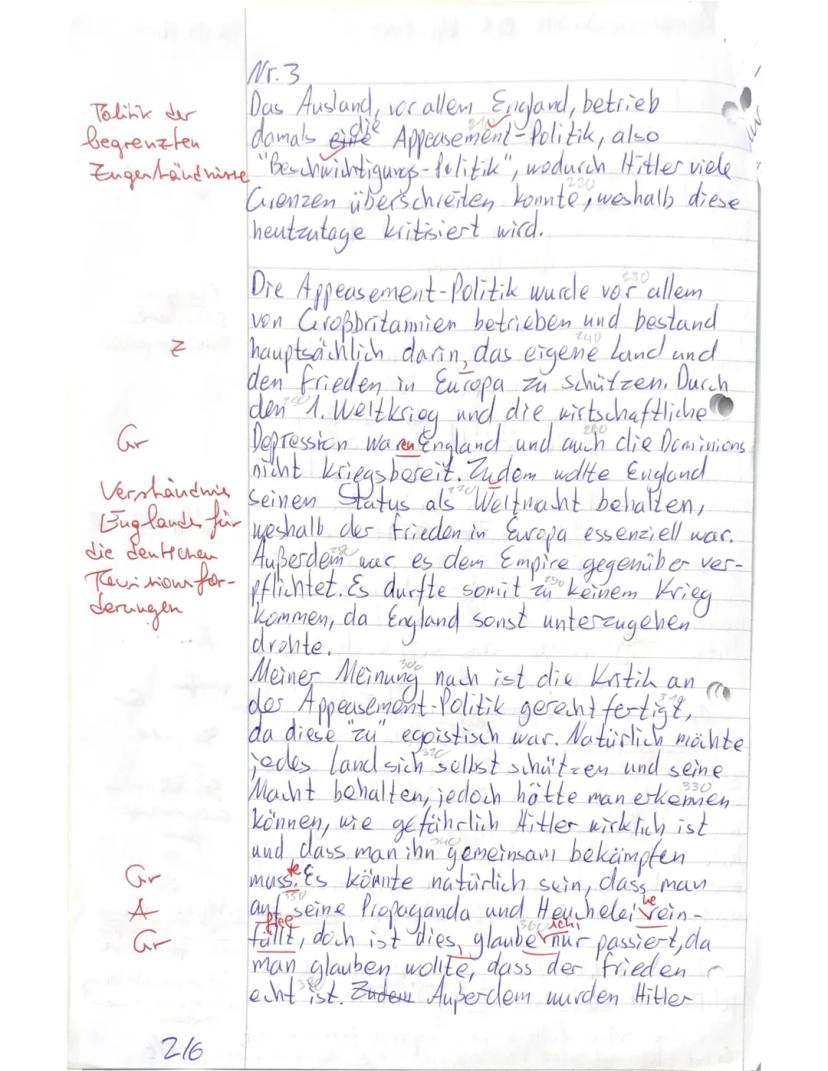 Nr. 3
Politik der
begrenzten
Zugeständnisse
Das Ausland, vor allem England, betrieb
damals eine die Appeasement-Politik, also
210
"Beschwichtigungs-Politik", wodurch Hitler viele
Grenzen überschreiten konnte, weshalb diese
220
heutzutage kritisiert wird.
Die Appeasement-Politik wurde vor allem
230
von Großbritannien betrieben und bestand
Z
hauptsächlich darin, das eigene Land und
240
den Frieden in Europa zu schützen. Durch
den 1. Weltkrieg und die wirtschaftliche
250
Gr
Depression waren England und auch die Dominions
260
nicht kriegsbereit. Zudem wollte England
Verständnis
Englands für
die deutschen
Revisionsfor-
derungen
seinen Status als Weltmacht behalten,
270
weshalb der Frieden in Europa essenziell war.
Außerdem war es dem Empire gegenüber ver-
280
pflichtet. Es durfte somit zu keinem Krieg
290
kommen, da England sonst unterzugehen
drohte.
Meiner Meinung nach ist die Kritik an
300
der Appeasement-Politik gerechtfertigt,
310
da diese "zu" egoistisch war. Natürlich möchte
jedes Land sich selbst schützen und seine
320
Macht behalten, jedoch hätte man erkennen
330
können, wie gefährlich Hitler wirklich ist
und dass man ihn gemeinsam bekämpfen
340
Gr
muss. te Es könnte natürlich sein, dass man
A
auf seine Propaganda und Heuchelei he rein-
350
Gr
fällt, fiel doch ist dies, glaube ich, nur passiert, da
360
man glauben wollte, dass der Frieden
echt ist. Zudem Außerdem wurden Hitler
370
2/6